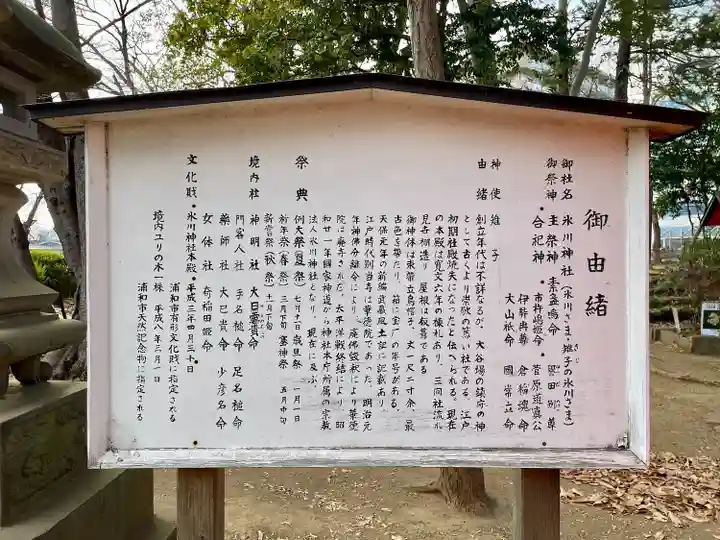 御由緒
御社名 氷川神社(氷川さま・雉子の氷川さま)
きじ
御祭神 主祭神 素盞嗚命
・合祀神 市杵嶋姫命 菅原道真公
伊弉冉尊 倉稲魂命
大山祇命 國常立命
神使 雉子
由緒 創立年代は不詳なるが、大谷場の鎮守の神
として古くより崇敬の篤い社である。江戸
初期社殿焼失になったと伝へられる。現在
の本殿は寛文六年の棟札あり、三間社流れ
見世棚造り 屋根は板葺である
御神体は束帯立烏帽子、丈一尺二寸余 最
古色を帯びたり、箱に宝厂の年号がある。
天保元年の新編武蔵風土記に記載あり
江戸時代別当寺は華徳院であった。明治元
年神佛分離令により、廃佛毀釈により華徳
院は廃寺された。太平洋戦終結により 昭
和廿一年國家神道から神社本庁所属の宗教
法人氷川神社となり、現在に及ぶ。
祭典 例大祭(夏祭)七月十一日 歳旦祭 一月一日
新年祭(春祭)三月下旬 塞神祭 五月中旬
新嘗祭(秋祭)十一月下旬
境内社 神明社 大日孁貴命
門客人社 手名椎命 足名椎命
薬師社 大己貴命 少彦名命
女体社 奇稲田姫命
文化財・氷川神社本殿・平成三年四月三十日
浦和市有形文化財に指定される
境内ユリの木一株 平成八年三月一日
浦和市天然記念物に指定される